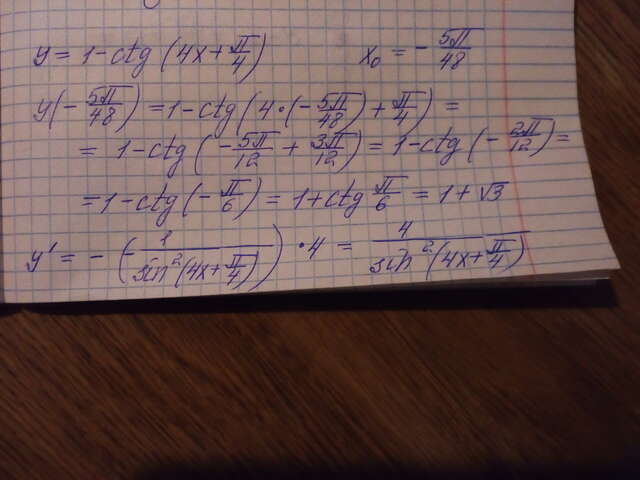 y = 1-ctg(4x+π/4) x₀ = -5π/48
y(-5π/48) = 1-ctg(4·(-5π/48)+π/4) =
= 1-ctg(-5π/12 + 3π/12) = 1-ctg(-2π/12) =
= 1-ctg(-π/6) = 1+ctg π/6 = 1+√3
y' = -(-1/sin²(4x+π/4))·4 = 4/sin²(4x+π/4)